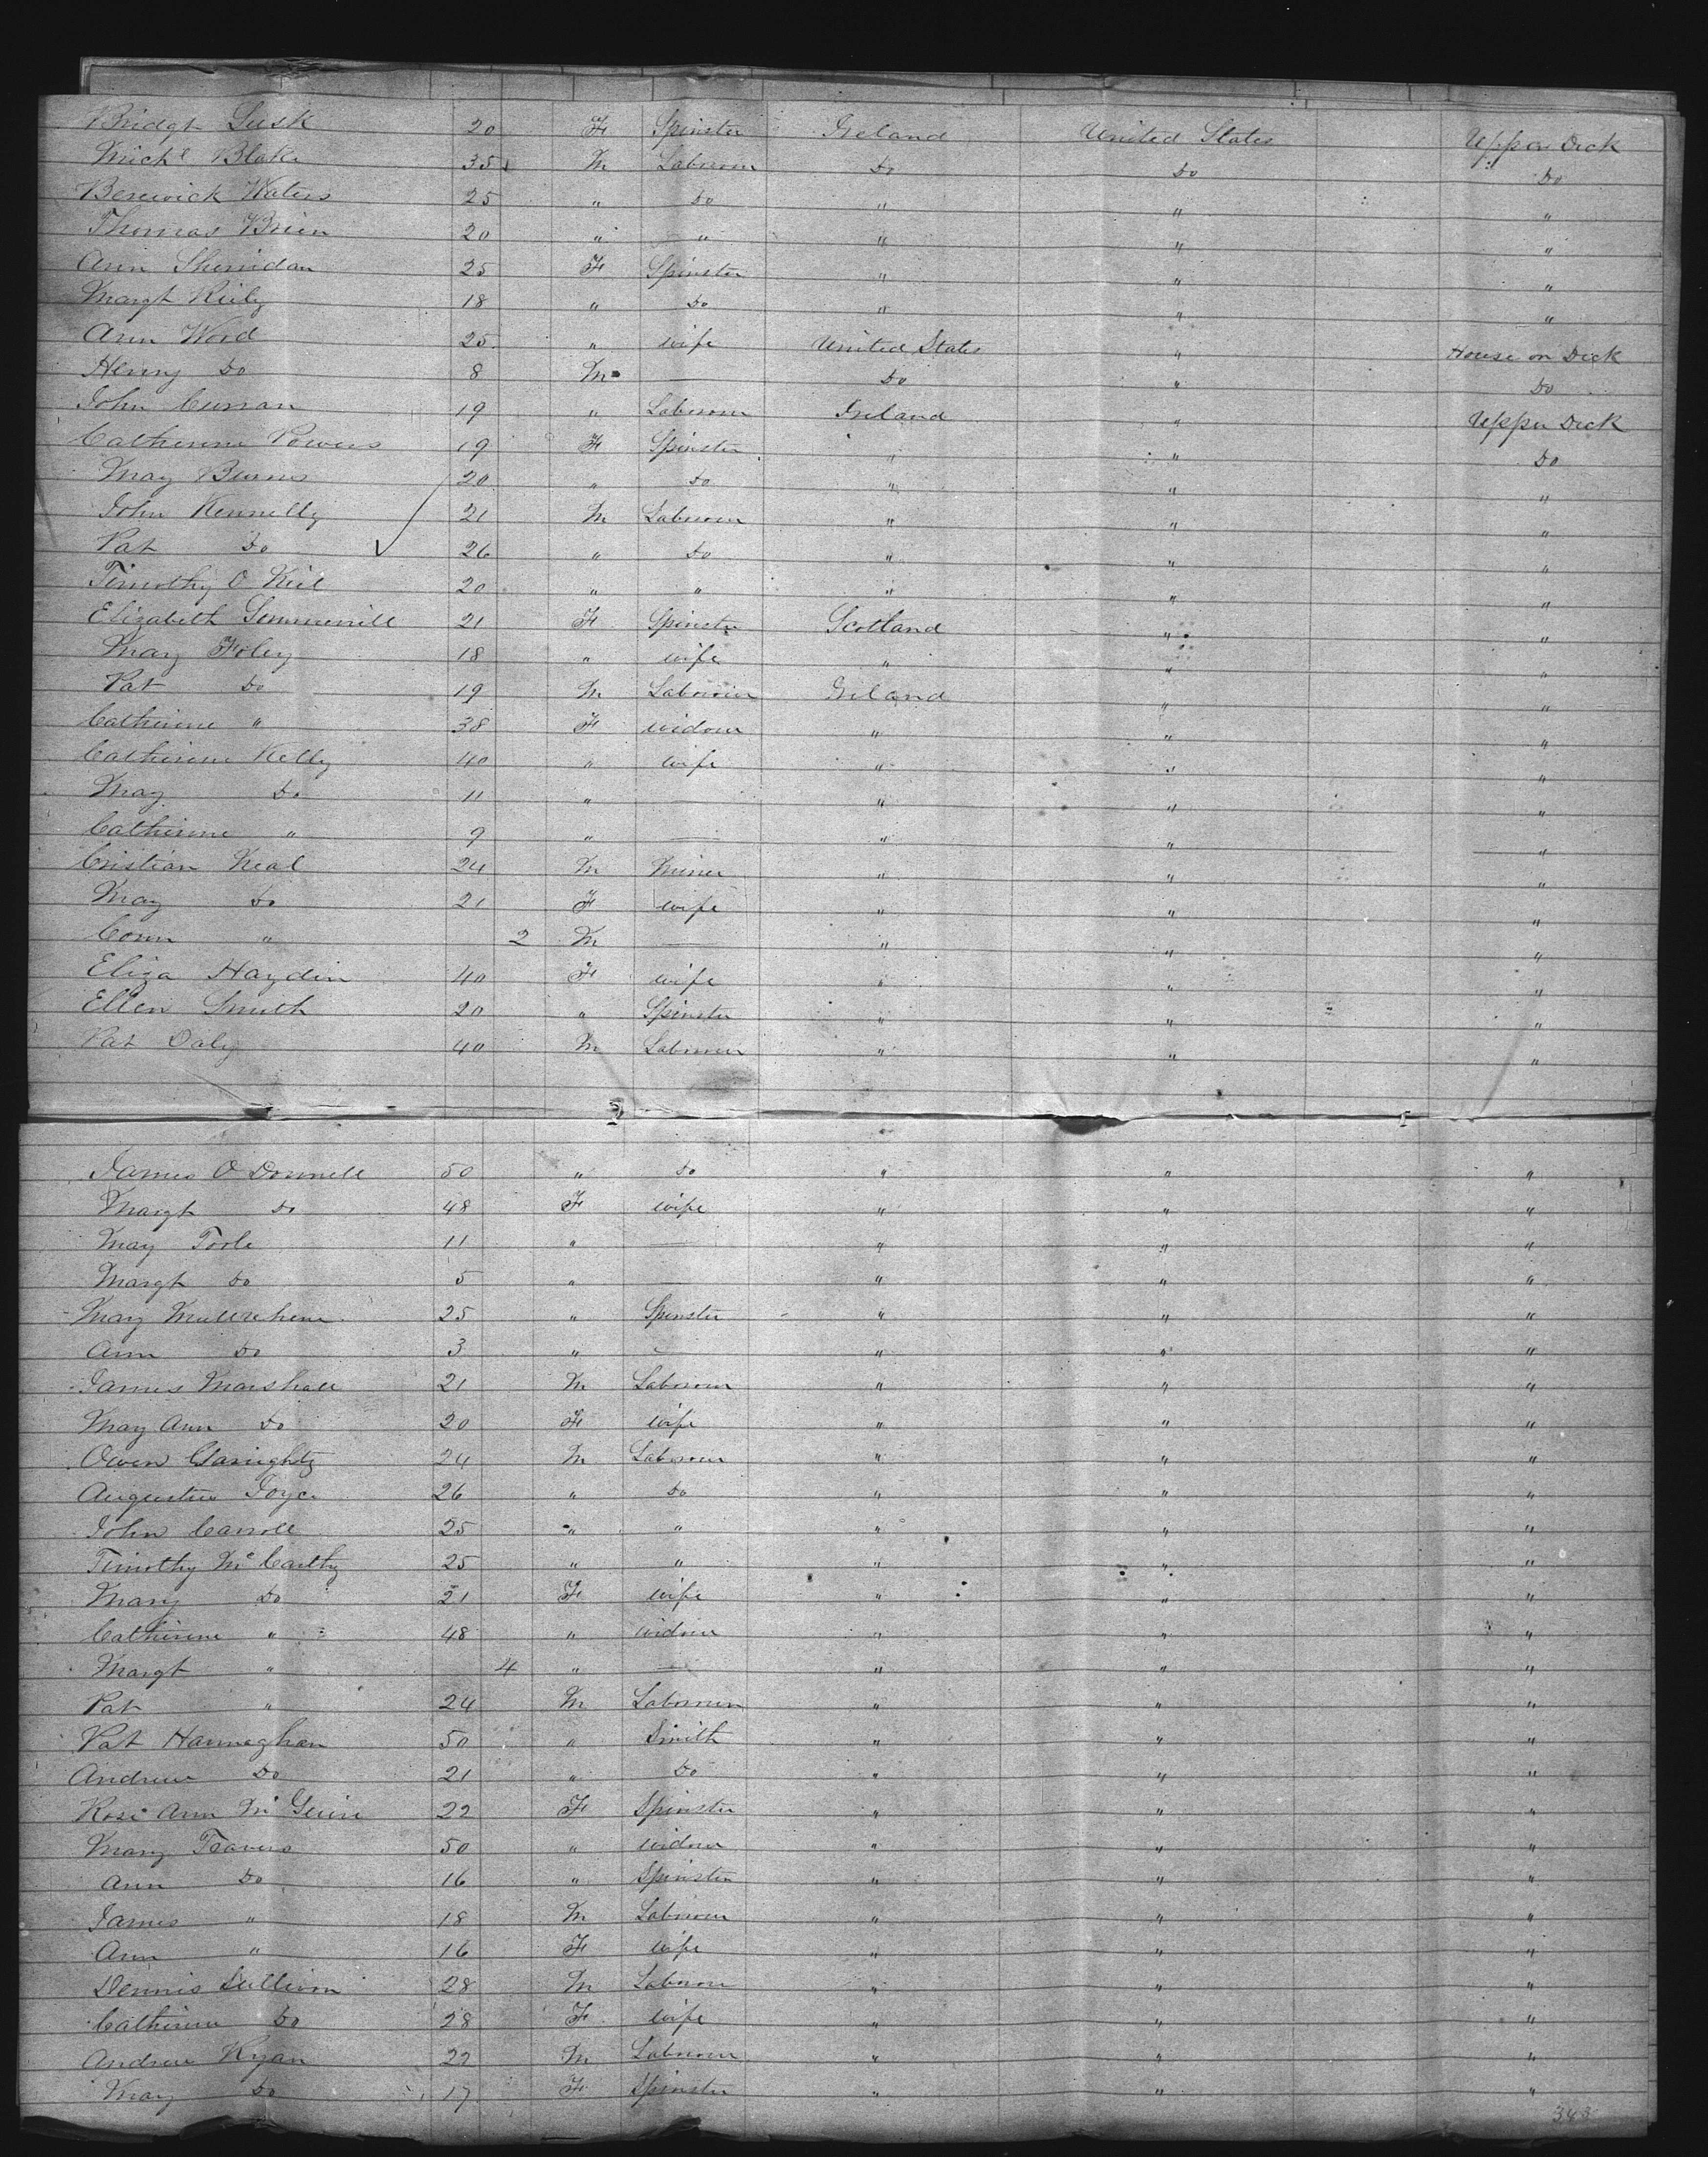 Bridgt Lusk 20 F Spinster Ireland United States Upper Deck
Michl Blake 35 M Labourer Do Do Do
Berewick Waters 25 " Do " " "
Thomas Brien 20 " " " " "
Ann Sheridan 25 F Spinster " " "
Margt Riely 18 " Do " " "
Ann Word 25 " wife United States " House on Deck
Henry Do 8 M — Do " Do
John Curran 19 " Labourer Ireland " Upper Deck
Catherine Powers 19 F Spinster " " Do
Mary Burns 20 " Do " " "
John Kennelly 21 M Labourer " " "
Pat Do 26 " Do " " "
Timothy O Neil 20 " " " " "
Elizabeth Summerville 21 F Spinster Scotland " "
Mary Foley 18 " wife " " "
Pat Do 19 M Labourer Ireland " "
Catherine " 38 F widow " " "
Catherine Kelly 40 " wife " " "
Mary Do 11 " — " " "
Catherine " 9 " — " " "
Cristian Neal 24 M Miner " " "
Mary Do 21 F wife " " "
Conn " 2 M — " " "
Eliza Haydin 40 F wife " " "
Ellen Smith 20 " Spinster " " "
Pat Daly 40 M Labourer " " "
James O Donnell 50 " Do " " "
Margt Do 48 F wife " " "
Mary Toole 11 " — " " "
Margt Do 5 " — " " "
Mary 25 " Spinster " " "
Ann Do 3 " — " " "
James Marshall 21 M Labourer " " "
Mary Ann Do 20 F wife " " "
Owen Garrighty 24 M Labourer " " "
Augustus Joyce 26 " Do " " "
John Carroll 25 " " " " "
Timothy McCarthy 25 " " " " "
Mary Do 21 F wife " " "
Catherine " 48 " widow " " "
Margt " 4 " — " " "
Pat " 24 M Labourer " " "
Pat Hannaghan 50 " Smith " " "
Andrew Do 21 " Do " " "
Rose Ann Mc 22 F Spinster " " "
Mary Travers 50 " widow " " "
Ann Do 16 " Spinster " " "
James " 18 M Labourer " " "
Ann " 16 F wife " " "
Dennis Sullivan 28 M Labourer " " "
Catherine Do 28 F wife " " "
Andrew Ryan 22 M Labourer " " "
Mary Do 17 F Spinster " " "
343